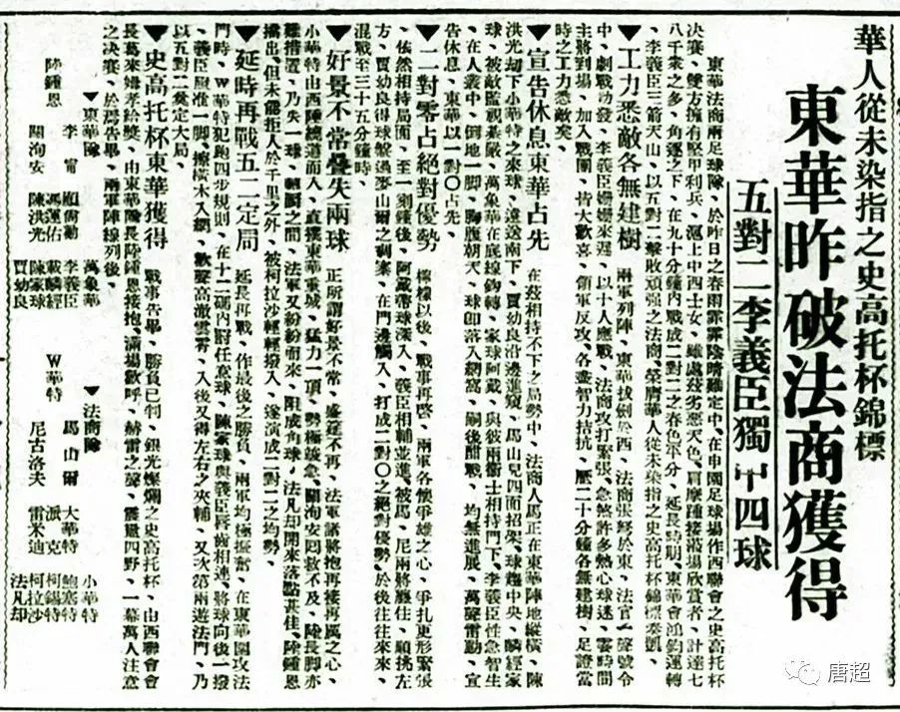 華人從未染指之史高托杯錦標
東華昨破法商獲得
五對二李義臣獨中四球
東華法商兩足球隊、於昨日之春雨霏霏陰晴難定中、在申園足球場作西聯會之史高托杯
決賽、雙方擁有堅甲利兵、滬上中西士女、雖處殘劣惡天色、肩摩踵接蒞場欣賞者、計達七
八千衆之多、角逐之下、在九十分鐘內戰成二對二之春色平分、延長時期、東華會鴻鈞運轉
、李義臣三箭天山、以五對二擊敗頑強之法商、榮膺華人從未染指之史高托杯錦標奏凱、
▼工力悉敵各無建樹 兩軍列陣、東華拔劍於西、法商張弩於東、法官一聲號令
中、劇戰勃發、李義臣姍姍來遲、以十人應戰、法商攻打緊張、急煞許多熱心球迷、霎時間
主將到場、加入戰團、皆大歡喜、領軍反攻、各盡智力拮抗、歷二十分鐘各無建樹、足證當
時之工力悉敵矣、
▼宣告休息東華占先 在茲相持不下之局勢中、法商人馬正在東華陣地縱橫、陳
洪光刼下小華特之來球、遠送南下、賈幼良沿邊進窺、馬山兒四面招架、球趨中央、麟經家
球、被敵監視綦嚴、萬象華在底線鈎轉、家球阿戴、與彼兩衞士相持門下、李義臣性急智生
、在人叢中、倒地一脚、胸腹朝天、球卽落入網窩、嗣後酣戰、均無進展、萬聲雷動、宣
告休息、東華以一對〇占先、
▼二對零占絕對優勢 檸檬以後、戰事再啓、兩軍各懷爭雄之心、爭扎更形緊張
、依然相持局面、至一刻鐘後、阿戴帶球深入、義臣相輔並進、被馬、尼兩將纒住、順挑左
方、賈幼良得球盤過麥山爾之、在門邊觸入、打成二對〇之絕對優勢、於後往往來來、
混戰至三十五分鐘時、
▼好景不常疊失兩球 正所謂好景不常、盛筵不再、法軍諸將抱再接再厲之心、
小華特由西陣繞道而入、直撲東華重城、猛力一頂、勢極談急、關洵安囘救不及、陸長脚亦
難措置、乃失一球、轉瞬之間、法軍又紛紛而來、阻成角球、法凡却開來落點甚佳、陸鍾恩
擋出、但未能拒人於千里之外、被柯拉沙輕輕撥入、遂演成二對二之均勢、
▼延時再戰五二定局 延長再戰、作最後之勝負、兩軍均極振奮、在東華圍攻法
門時、W華特犯跑四步規則、在十二碼內罸任意球、陳家球與義臣唇齒相連、將球向後一撥
、義臣照准一脚、擦橫木入網、歡聲高澈雲霄、入後又得左右之夾輔、又次第兩遊法門、乃
以五對二奠定大局、
▼史高托杯東華獲得 戰事告畢、勝負已判、銀光燦爛之史高托杯、由西聯會會
長葛來姆孝給獎、由東華隊長陸鍾恩接抱、滿場歡呼、赫雷之聲、震撼四野、一幕萬人注意
之决賽、於焉告畢、兩軍陣線列後、
▼東華隊
陸鍾恩
李甯 關洵安
顧尙勷 馮運佑 陳洪光
萬象華 李義臣 戴麟經 陳家球 賈幼良
▼法商隊
W華特
馬山爾 尼古洛夫
大華特 派克 雷米迪
小華特 鮑塞特 柯錫特 柯拉沙 法凡却
唐超